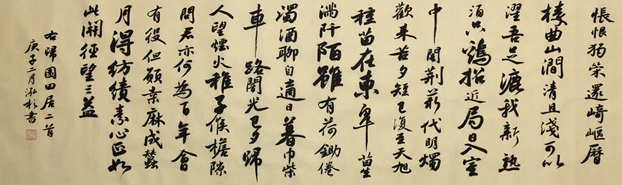 悵恨獨策還崎嶇歷
榛曲山澗清且淺可以
濯吾足漉我新熟
酒只鷄招近局日入室
中闇荊薪代明燭
歡來苦夕短已復至天旭
種苗在東皋苗生
滿阡陌雖有荷鋤倦
濁酒聊自適日暮巾柴
車路闇光已夕歸
人望煙火稚子候檐隙
問君亦何為百年會
有役但願桑麻成蠶
月得紡績素心正如
此開徑望三益
右歸園田居二首
庚子二月泓杉書